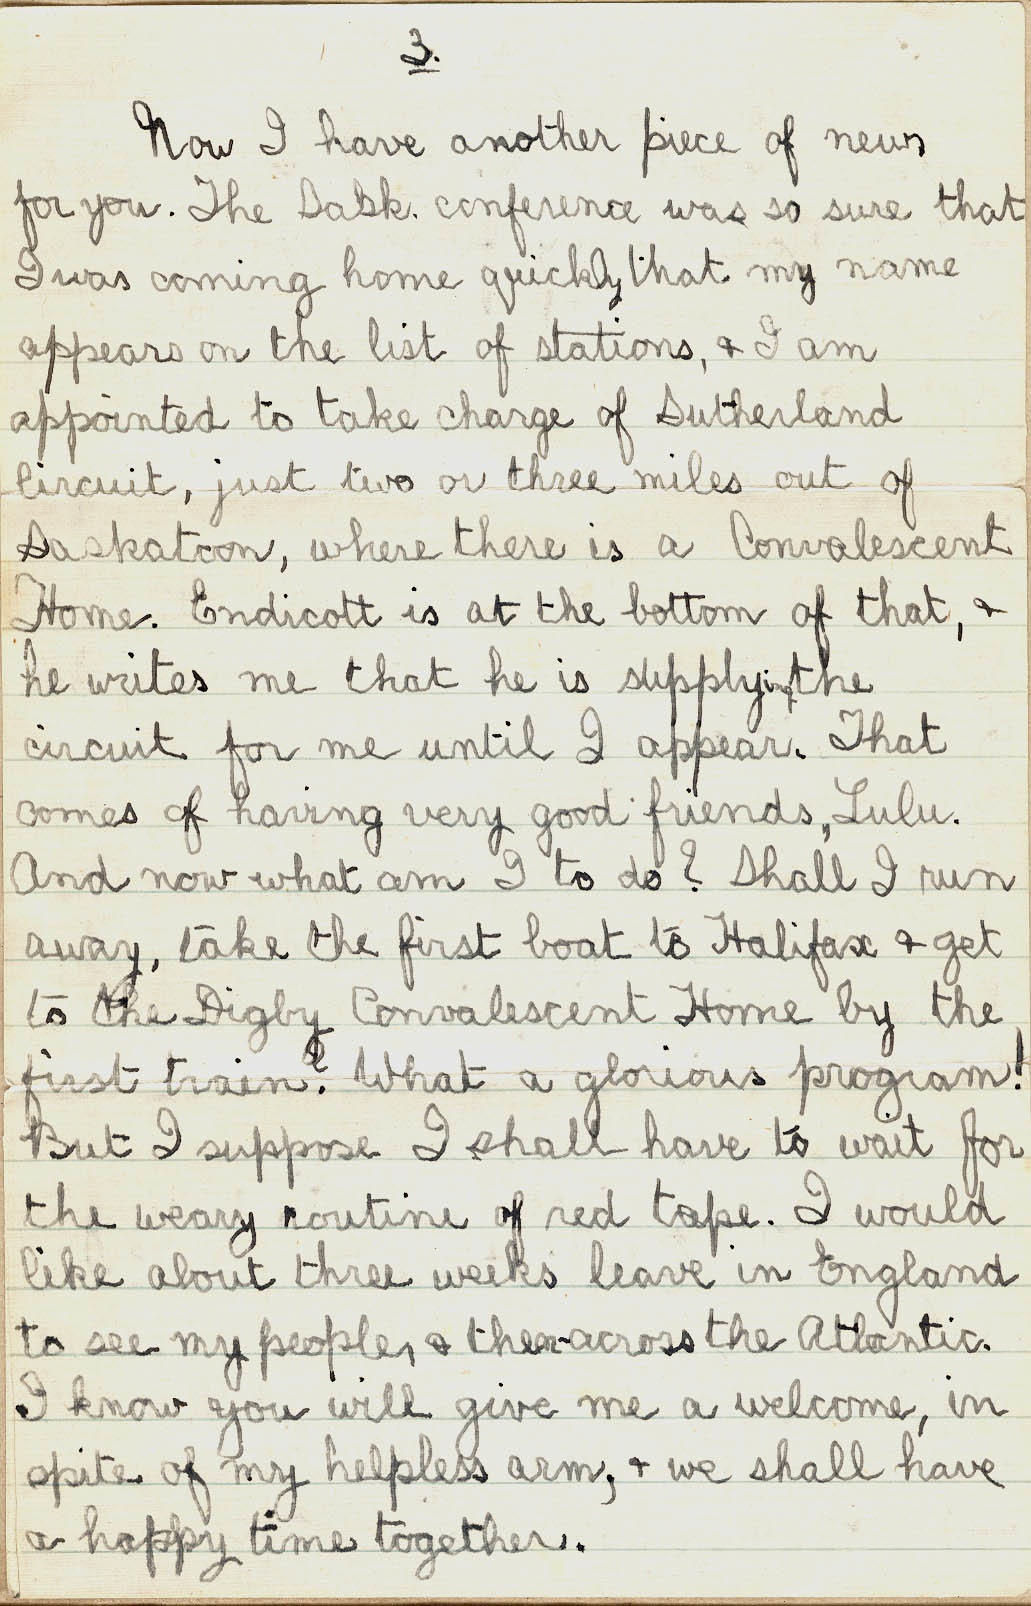 3.
Now I have another piece of news
for you. The Sask. conference was so sure that
I was coming home quickly that my name
appears on the list of stations, & I am
appointed to take charge of Sutherland
circuit, just two or three miles out of
Saskatoon, where there is a Convalescent
Home. Endicott is at the bottom of that, &
he writes me that he is supplying the
circuit for me until I appear. That
comes of having very good friends, Lulu.
And now what am I to do? Shall I run
away, take the first boat to Halifax & get
to the Digby Convalescent Home by the
first train? What a glorious program!
But I suppose I shall have to wait for
the weary routine of red tape. I would
like about three weeks leave in England
to see my people, & then across the Atlantic.
I know you will give me a welcome, in
spite of my helpless arm, & we shall have
a happy time together.